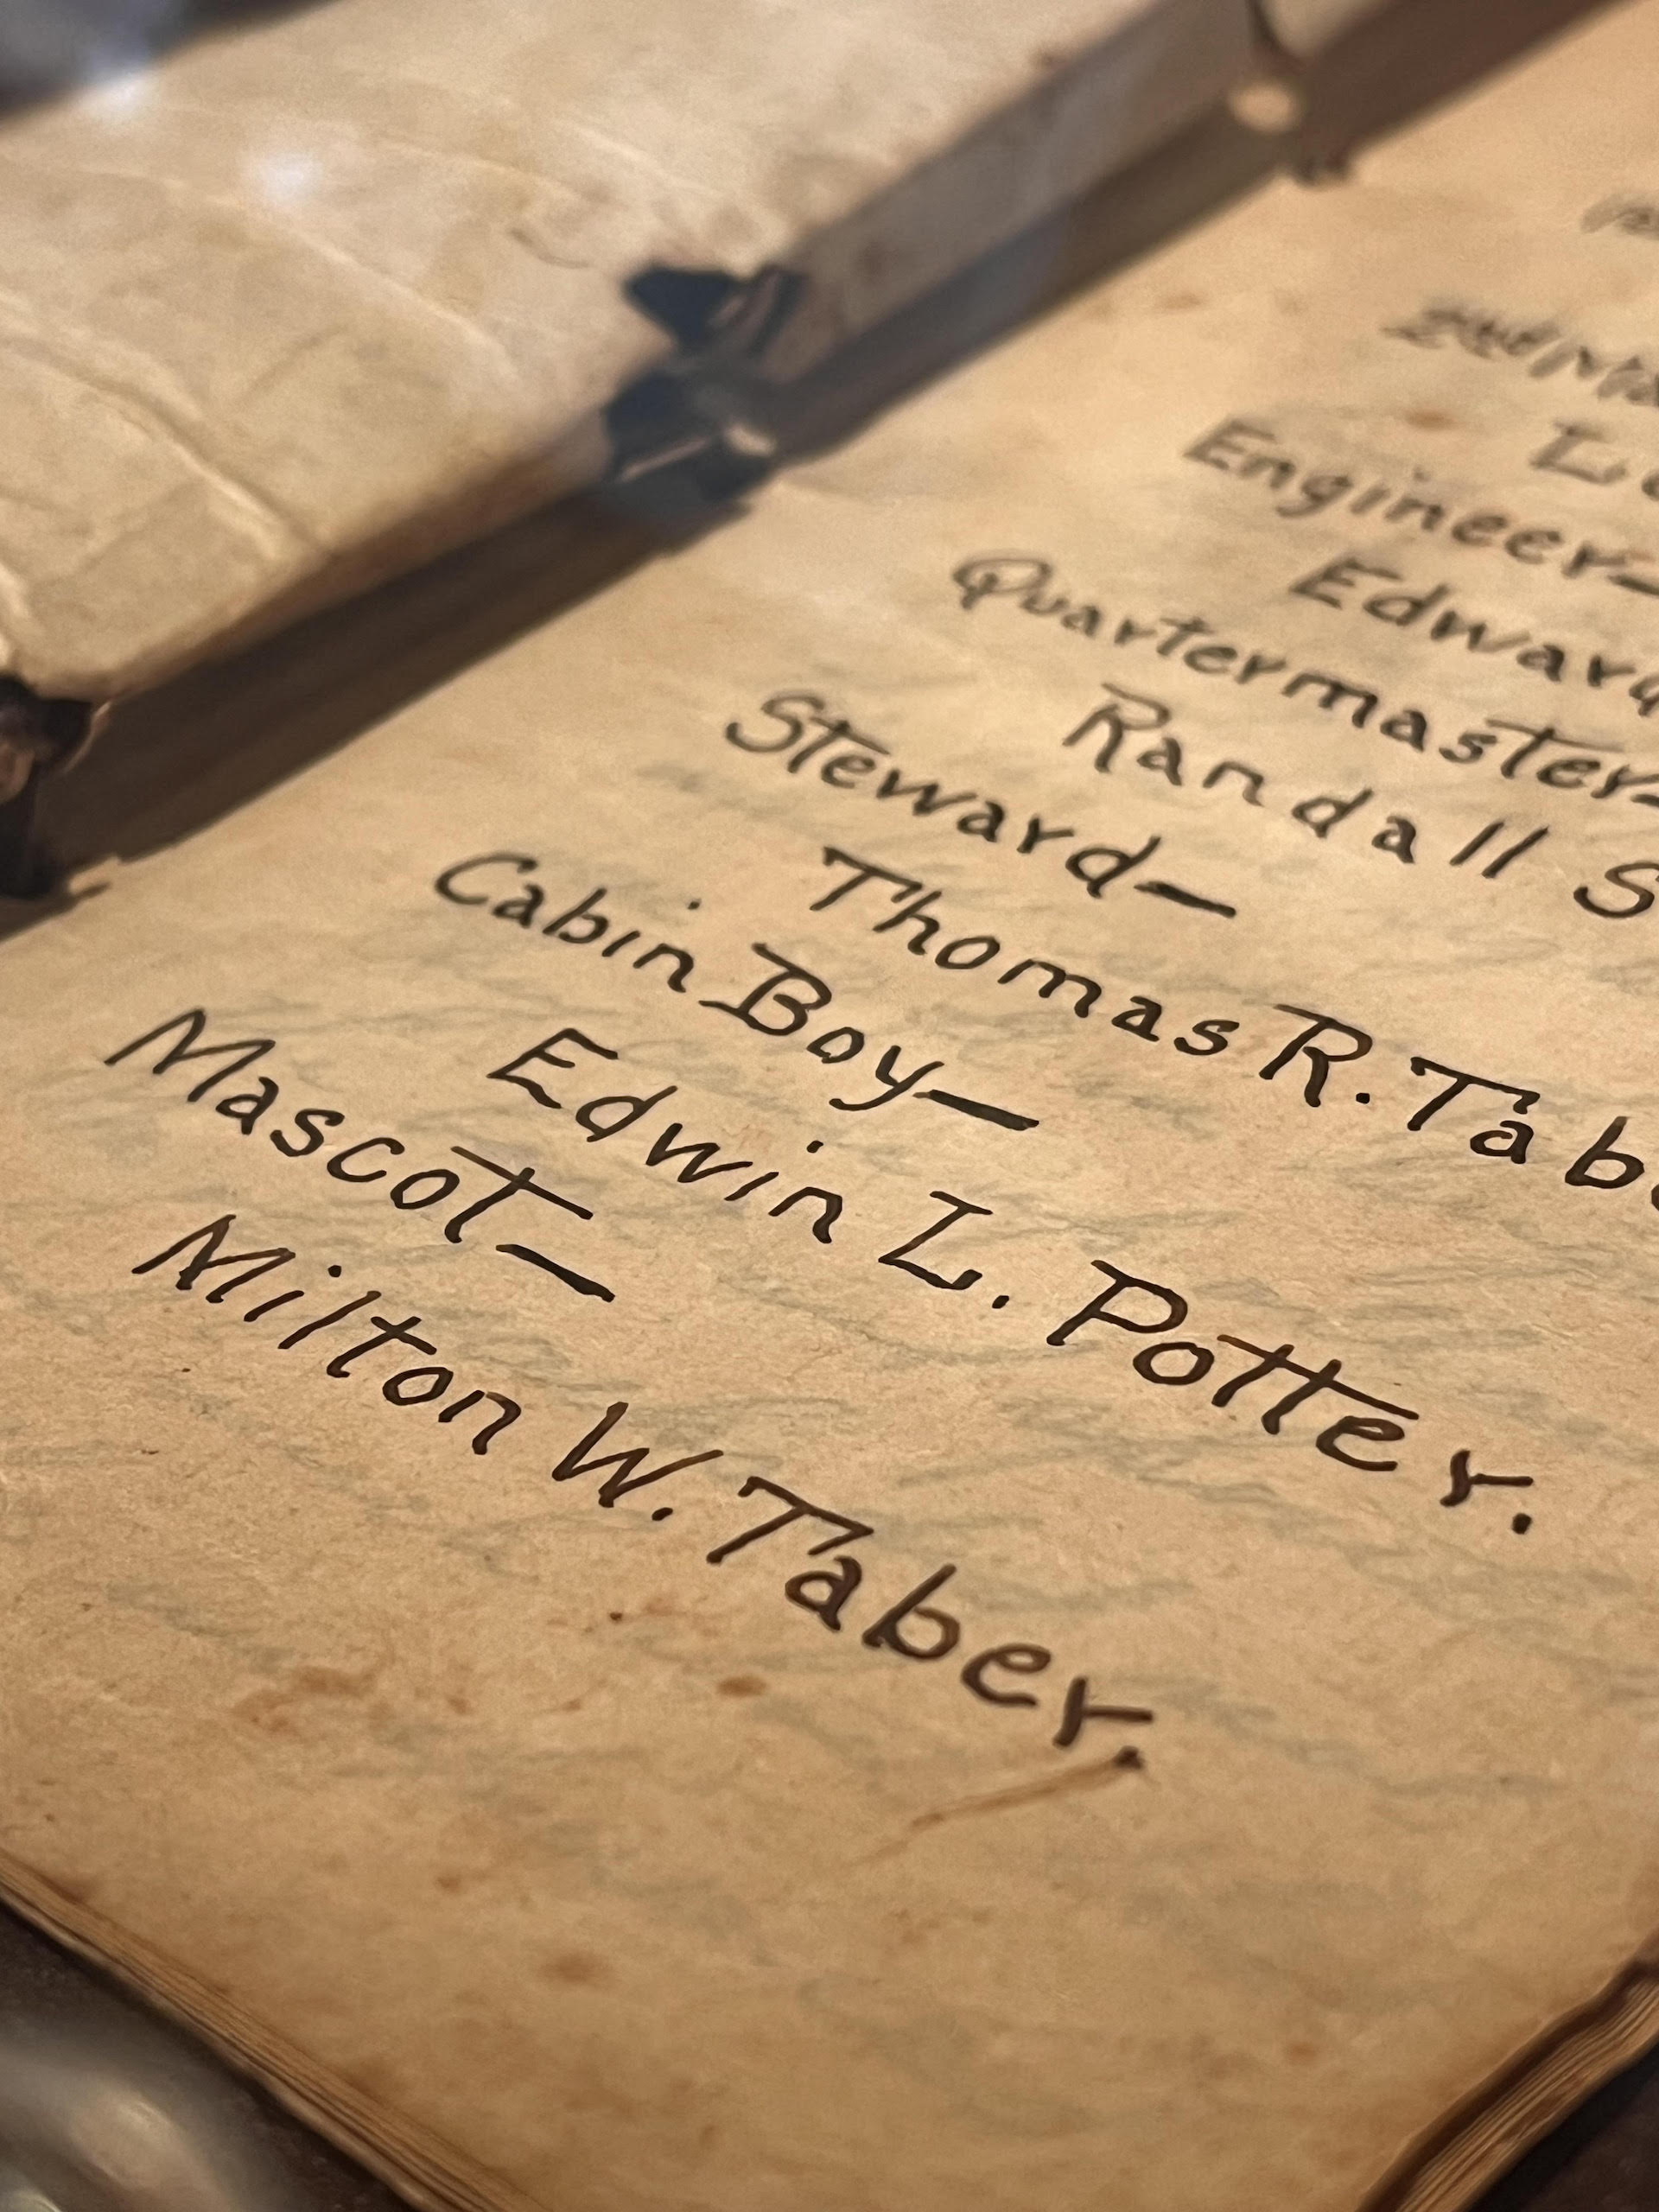 Engineer—
Edward
Quartermaster—
Randall S
Steward—
Thomas R. Tabe
Cabin Boy—
Edwin L. Potter.
Mascot—
Milton W. Taber.